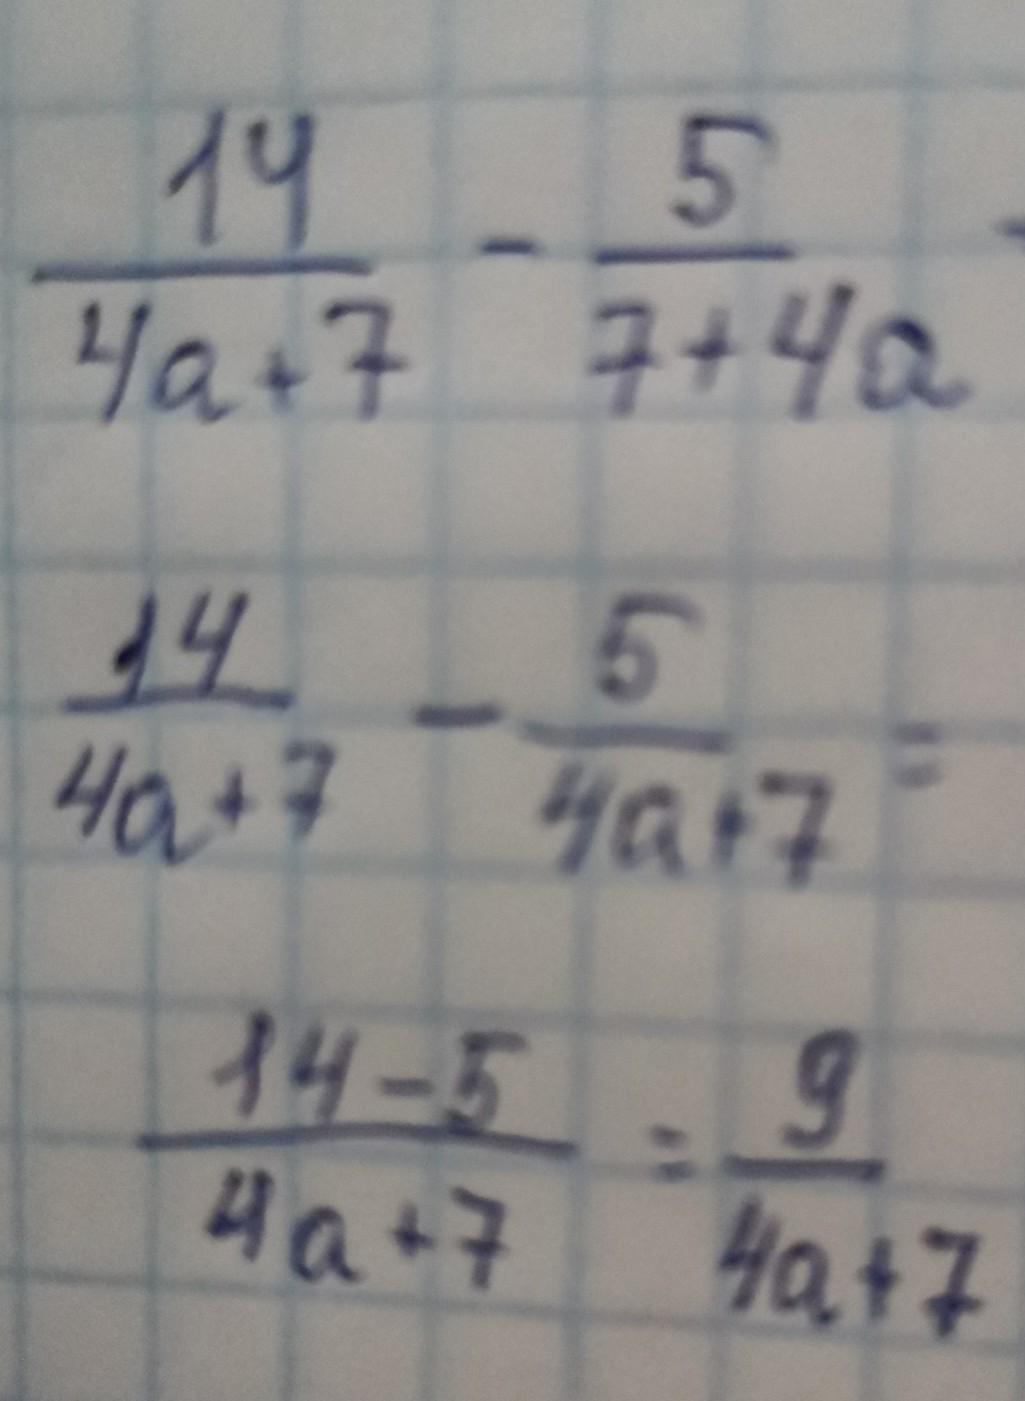 14/(4a+7) - 5/(7+4a)
14/(4a+7) - 5/(4a+7) =
(14-5)/(4a+7) = 9/(4a+7)